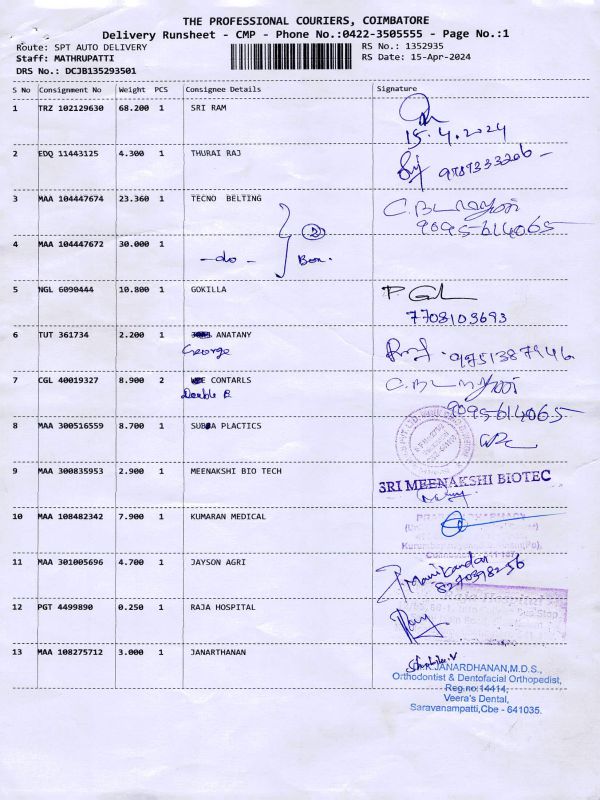 THE PROFESSIONAL COURIERS, COIMBATORE
Delivery Runsheet - CMP - Phone No.:0422-3505555 - Page No.:1
Route: SPT AUTO DELIVERY RS No.: 1352935
Staff: MATHRUPATTI RS Date: 15-Apr-2024
DRS No.: DCJB135293501
S No Consignment No Weight PCS Consignee Details Signature
1 TRZ 102129630 68.200 1 SRI RAM
15.4.2024
2 EDQ 11443125 4.300 1 THURAI RAJ
3 MAA 104447674 23.360 1 TECNO BELTING
9095-614065
2
4 MAA 104447672 30.000 1
-do- Box.
5 NGL 6090444 10.800 1 GOKILLA
7708103693
6 TUT 361734 2.200 1 ANATANY
George 9751387946
7 CGL 40019327 8.900 2 CONTARLS
Double E
9095-614065
8 MAA 300516559 8.700 1 SUBA PLACTICS
9 MAA 300835953 2.900 1 MEENAKSHI BIO TECH
SRI MEENAKSHI BIOTEC
10 MAA 108482342 7.900 1 KUMARAN MEDICAL
11 MAA 301005696 4.700 1 JAYSON AGRI
Manikandan
8270398256
12 PGT 4499890 0.250 1 RAJA HOSPITAL
13 MAA 108275712 3.000 1 JANARTHANAN
JANARDHANAN,M.D.S.,
Orthodontist & Dentofacial Orthopedist,
Reg.no:14414,
Veera's Dental,
Saravanampatti,Cbe - 641035.